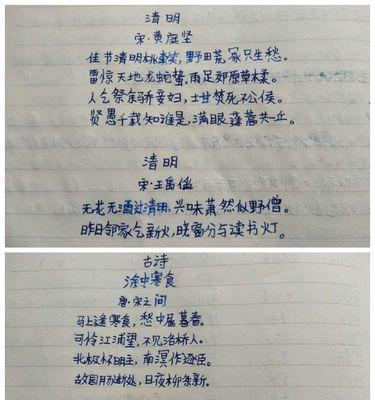 清明
宋·黄庭坚
佳节清明桃李笑,野田荒冢只生愁。
雷惊天地龙蛇蛰,雨足郊原草木柔。
人乞祭余骄妾妇,士甘焚死不公侯。
贤愚千载知谁是,满眼蓬蒿共一丘。
清明
宋·王禹偁
无花无酒过清明,兴味萧然似野僧。
昨日邻家乞新火,晓窗分与读书灯。
古诗
途中寒食
唐·宋之问
马上逢寒食,愁中属暮春。
可怜江浦望,不见洛桥人。
北极怀明主,南溟作逐臣。
故园肠断处,日夜柳条新。